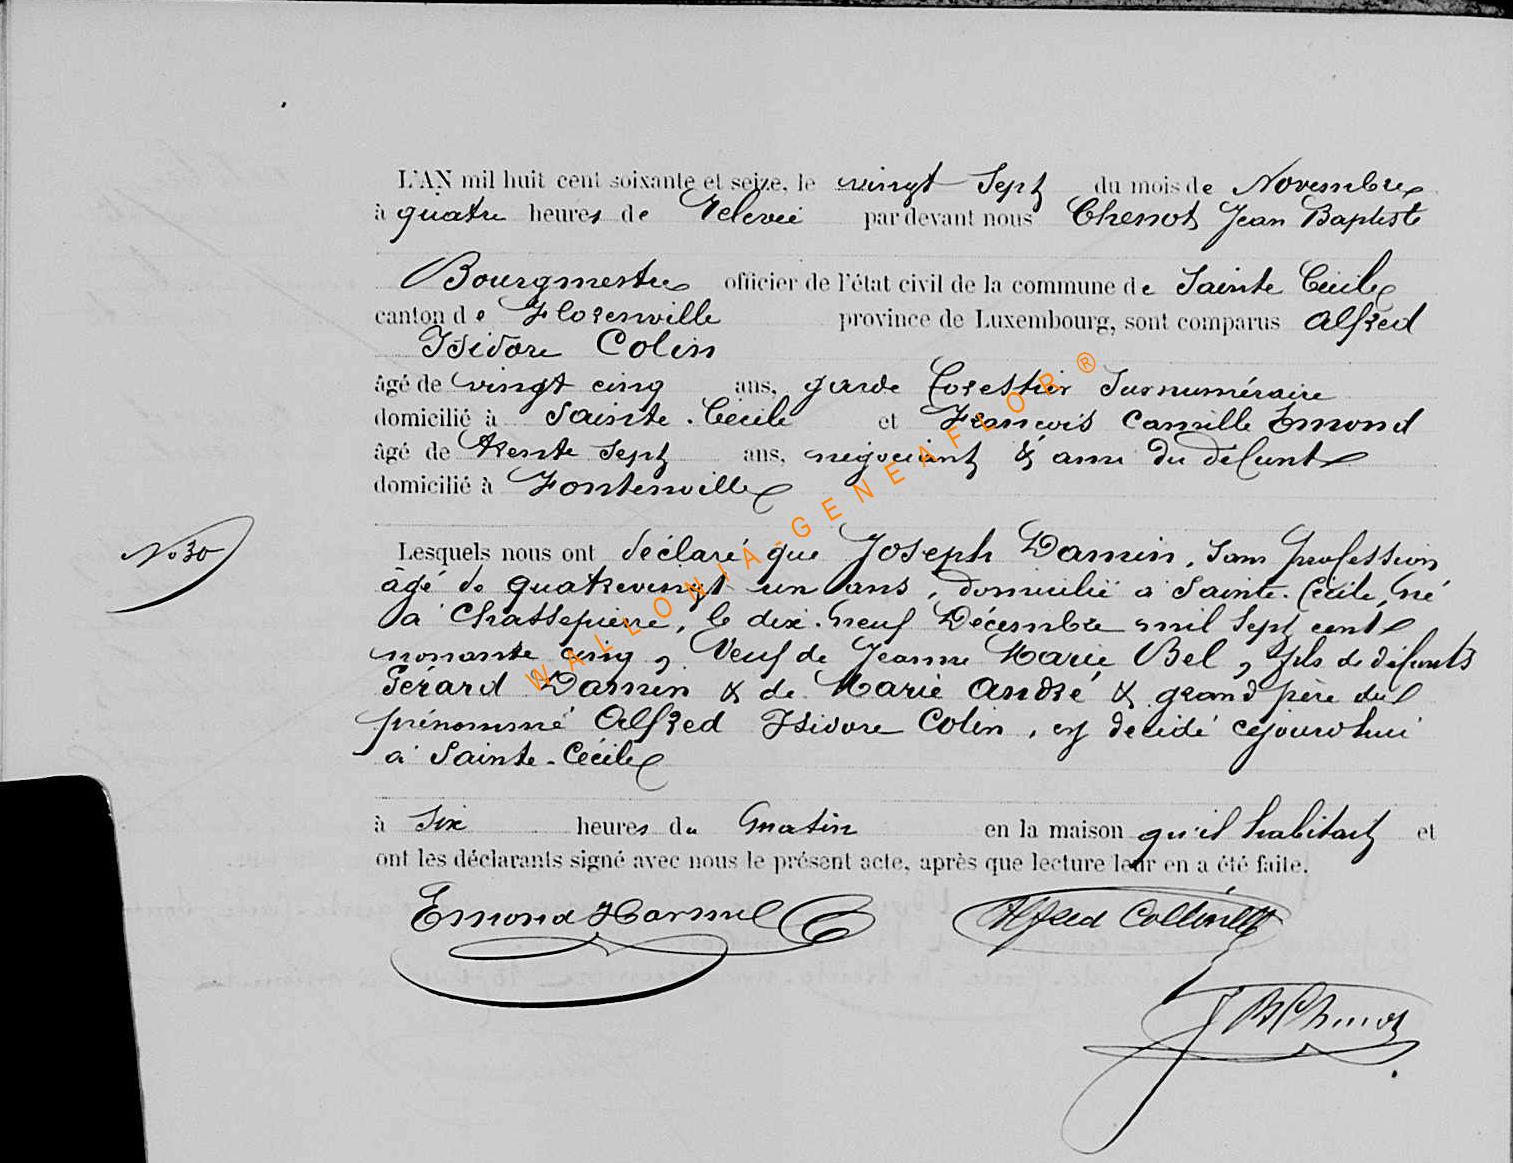 L'AN mil huit cent soixante et seize, le vingt Sept du mois de Novembre
à quatre heures de Relevée par devant nous Chenot Jean Baptiste
Bourgmestre officier de l'état civil de la commune de Sainte Cécile
canton de Florenville province de Luxembourg, sont comparus Alfred
Isidore Colin
âgé de vingt cinq ans, garde forestier Surnuméraire
domicilié à Sainte-Cécile et François Camille Emond
âgé de trente Sept ans, négociant & ami du defunt
domicilié à Fontenoille
No 30
Lesquels nous ont déclaré que Joseph Damin, Sans profession
âgé de quatrevingt un ans, domicilié à Sainte-Cécile, né
à Chassepierre, le dix-neuf Décembre mil Sept cent
nonante cinq, Veuf de Jeanne Marie Bel, fils de défunts
Gérard Damin & de Marie André & grand père du
prénommé Alfred Isidore Colin, est decédé cejourd'hui
à Sainte-Cécile
à Six heures du matin en la maison qu'il habitait et
ont les déclarants signé avec nous le présent acte, après que lecture leur en a été faite.
Emond Harmel Alfred
JB Chenot
WALLONIA-GENEAFLOR ®